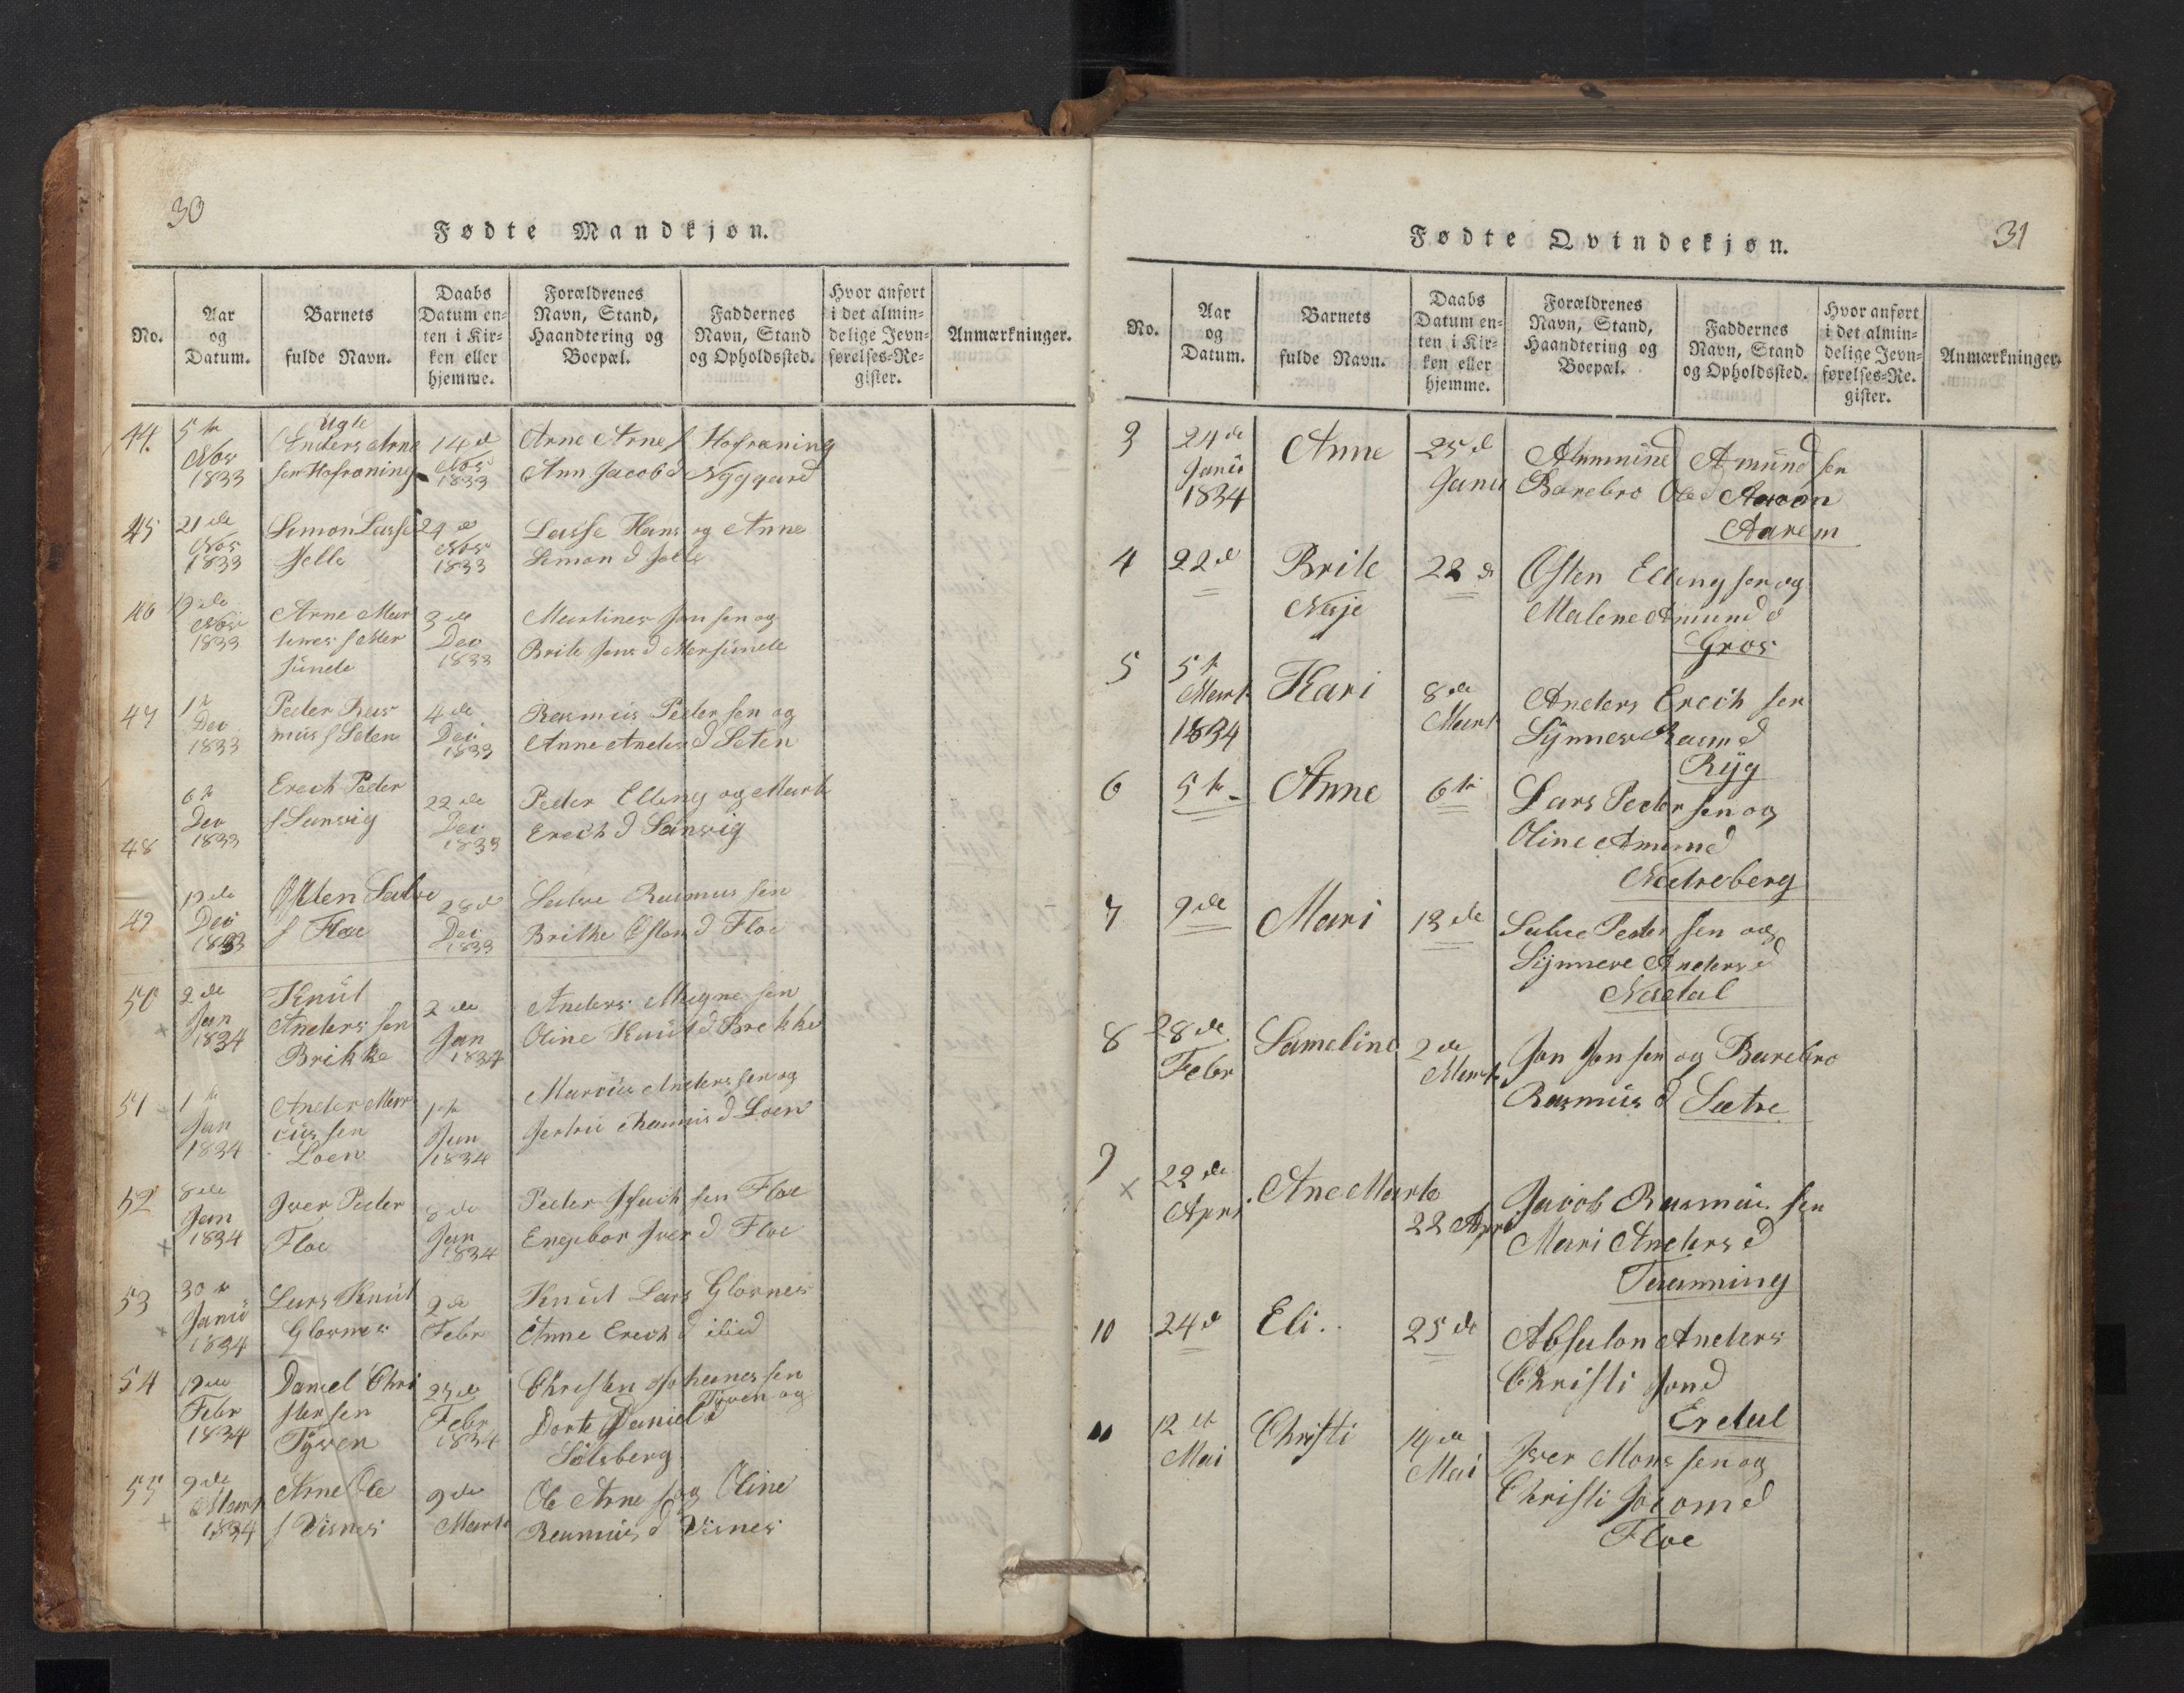 30
Fødte Mandkjøn.
No.
Aar og Datum.
Barnets fulde Navn.
Daabs Datum enten i Kirken eller hjemme.
Forældrenes Navn, Stand, Haandtering og Boepæl.
Faddernes Navn, Stand og Opholdssted.
Hvor anført i det almindelige Jevnførelses-Register.
Anmærkninger.
44. 5te Nov 1833
Anders Arne sen Hofræning
14 d Nov 1833
Arne Arne s Hofræning
Ann Jacob d Nyggard
45 21de Nov 1833
Simon Lasse
24 de Nov 1833
Lasse Hans og Anne
Simon d
46 Nov 1833
Arne Mar
3 de Dec 1833
Martines Jon sen og
Brite Jens d
47 1te Dec 1833
Peder Ras
mus s Seten
4 de Dec 1833
Rasmus Peder sen og
Anne Anders d Seten
48 6te Dec 1833
Erech Peder
s Sanvig
22 de Dec 1833
Peder Elling og Marte
Erech d Sanvig
49 Dec 1833
s Floe
28 d Dec 1833
Rasmus sen
Brithe Østen d Floe
50 2de Jan 1834
Knut
Anders sen
Brikke
2 de Jan 1834
Anders Magne sen
Oline Knut d Brekke
51 1te Jan 1834
Ander Mar
cus sen
Loen
1te Jan 1834
Marcus Anders sen og
Rasmus d Loen
52 8de Jan 1834
Iver Peder
Floe
8 de Jan 1834
Peder sen Floe
Engebor Iver d Floe
53 30te Janu 1834
Lars Knut
Glosnes
2 de Febr
Knut Lars Glosnes
Anne Erech d
54 Febr 1834
Daniel Chri
sten sen
Tyven
23 de Febr 1834
Christen Johanes sen
Tyven og
Dorte Daniel d
Solsberg
55 9de Mart 1834
Arne Ole
s Visnes
9 de Marte
Ole Arne s og Oline
Rasmus d Visnes
31
Fødte Qvindekjøn.
No.
Aar og Datum.
Barnets fulde Navn.
Daabs Datum enten i Kirken eller hjemme.
Forældrenes Navn, Stand, Haandtering og Boepæl.
Faddernes Navn, Stand og Opholdssted.
Hvor anført i det almindelige Jevnførelses-Register.
Anmærkninger.
3 24 de Janu 1834
Anne
25 d Janu
Ammund Amund sen
Barebro Ole d
Aarem
4 22 d
Brite
Nesje
22 d
Østen Elling sen og
Malene Amund d
Gros
5 5te Mart 1834
Kari
8 de Mart
Anders Erech sen
Synneve Rasm d
Ryg
6 5te
Anne
6te
Lars Peder sen og
Oline Amund
Nedreberg
7 9 de
Mari
13 de
Peder sen og
Synneve Anders d
Nesdal
8 28 de Febr
Sameline
2 de Mart
Jon Jon sen og Barebro
Rasmus d Sætre
9 22 de Apri
Ane Marte
22 Apri
Jacob Rasmus sen
Mari Anders d
Tanning
10 24 d
Eli..
25 de
Absalon Anders
Christi Jon d
Erdal
11 12 te Mai
Christi
14 de Mai
Iver Mons sen og
Christi d
Floe